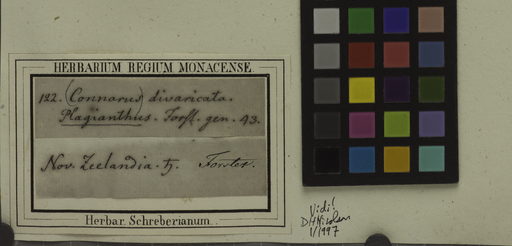 HERBARIUM REGIUM MONACENSE.
122. (Connarus) divaricata.
Plagianthus. Forst. gen. 43.
Nov. Zeelandia. ♄. Forster.
Herbar. Schreberianum.
Vidi!
DH Nicolson
1/1997